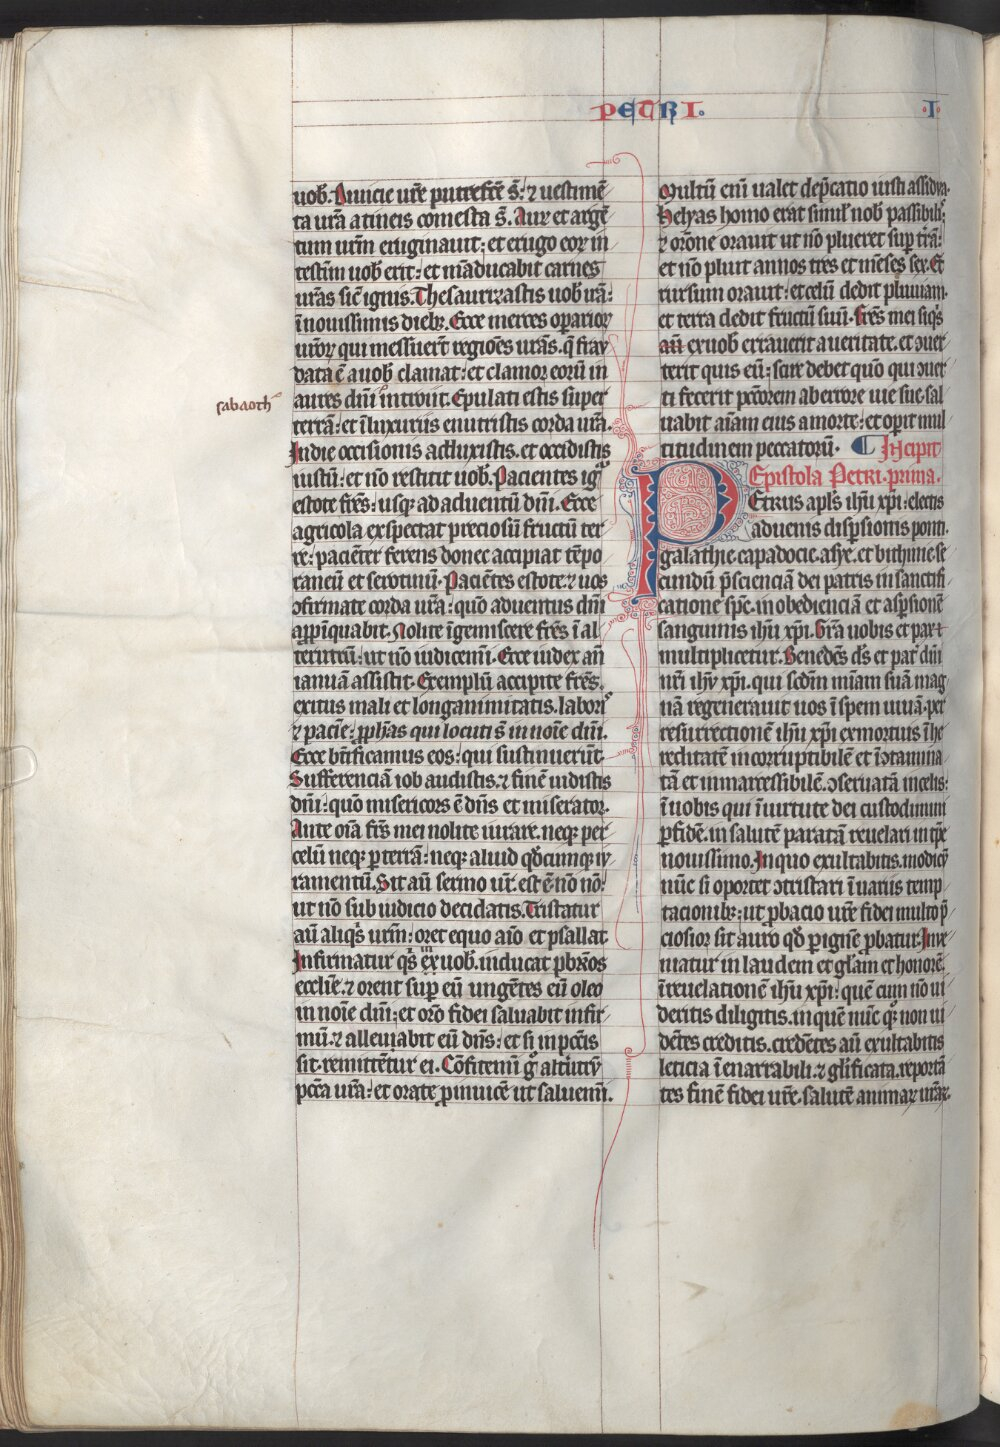 PETRI. .I.
uob̄. Diuicie ur̄e putrefc̄e s̄: ⁊ uestimē
ta ur̄a a tineis comesta s̄. Auꝝ et argē
tum ur̄m eruginauit: et erugo eoꝝ in
testīm uob̄ erit: et māducabit carnes
ur̄as sic̄ ignis. Thesaurizastis uob̄ irā:
ī nouissimis diebꝫ. Ecce merces oꝑarioꝝ
ur̄oꝝ qui messuer̄t regiōes ur̄as. q̄ frau
data ē a uob̄ clamat: et clamor eorū in
aures dn̄i introiit. Epulati estis super
sabaoth
terrā: et ī luxuriis enutristis corda ur̄a.
In die occisionis adduxistis. et occidistis
iustū: et nō restitit uob̄. Pacientes igͬ
estote fr̄es: usqꝫ ad aduentū dn̄i. Ecce
agricola exspectat preciosū fructū ter
re: paciēter ferens donec accipiat tēpo
raneū et serotinū. Paciētes estote. ⁊ uos
ꝯfirmate corda ur̄a: quō aduentus dn̄i
aꝓpīquabit. Nolite īgemiscere fr̄es ī al
terutrū: ut nō iudicemī. Ecce iudex an̄
ianuā assistit. Exemplū accipite fr̄es.
exitus mali et longanimitatis. laborͥ
⁊ pacīe: ꝓph̄as qui locuti s̄ in noīe dn̄i.
Ecce bt̄ificamus eos: qui sustinuerūt.
Sufferenciā iob audistis. ⁊ finē uidistis
dn̄i: quō misericors ē dn̄s et miserator.
Ante oīa fr̄s mei nolite iurare. neqꝫ per
celū neqꝫ ꝑ terrā: neqꝫ aliud qd̄cumqꝫ iu
ramentū. Sit aū sermo ur̄. est ē. nō nō:
ut nō sub iudicio decidatis. Tristatur
aū aliqͥs ur̄m: oret equo aīo et psallat
Infirmatur qͥs ex uob̄. inducat pb̄ros
ecclīe. ⁊ orent suꝑ eū ungētes eū oleo
in noīe dn̄i: et orō fidei saluabit infir
mū. ⁊ alleuiabit eū dn̄s: et si in pcc̄is
sit. remittētur ei. Cōfitemī gͦ altͬutͬꝝ
pcc̄a ur̄a: et orate ꝓ inuicē ut saluemī.
Multū enī ualet dep̄catio iusti assidua.
Helyas homo erat simil̄ nob̄ passibil̄:
⁊ orōne orauit ut nō plueret suꝑ tr̄ā:
et nō pluit annos tres et mēses sex. Et
rursum orauit: et celū dedit pluuiam.
et terra dedit fructū suū. Fr̄es mei siqͥs
aū ex uob̄ errauerit a ueritate. et ꝯuer
terit quis eū: scire debet quō qui ꝯuer
ti fecerit pcc̄orem ab errore uie sue. sal
uabit aīam eius a morte: et oꝑit mul
titudinem peccatorū. ¶ Incipit
Epistola Petri. prima.
PEtrus apl̄s ih̄u xp̄i: electis
aduenis disꝑsionis pont.
galathie. capadocie. asye. et bithinie se
cundū p̄scienciā dei patris in sanctifi
catione sp̄c. in obedienciā et asꝑsionē
sanguinis ih̄u xp̄i. Gr̄a uobis et pax
multiplicetur. Benedc̄s d̄s et pat̄ dn̄i
nr̄i ih̄u xp̄i. qui sc̄dm mīam suā mag
nā regenerauit uos ī spem uiuā. per
resurrectionē ih̄u xp̄i ex mortuis ī he
reditatē incorruptibilē et īꝯtamina
tā et inmarcessibilē. ꝯseruatā in celis:
ī uobis qui ī uirtute dei custodimini
ꝑ fidē. in salutē paratā reuelari in tp̄e
nouissimo. In quo exultabitis. modicū
nūc si oportet ꝯtristari ī uariis temp
tacionibꝫ: ut ꝓbacio ur̄e fidei multo p̄
ciosior sit auro qd̄ ꝑ ignē ꝓbatur. Inue
niatur in laudem et gl̄am et honorē.
ī reuelationē ih̄u xp̄i: quē cum nō ui
deritis diligitis. in quē nūc qͦqꝫ non ui
dētes creditis. credētes aū exultabitis
leticia īenarrabili. ⁊ gl̄ificata. reportā
tes finē fidei ur̄e. salutē animaꝝ ur̄aꝝ.